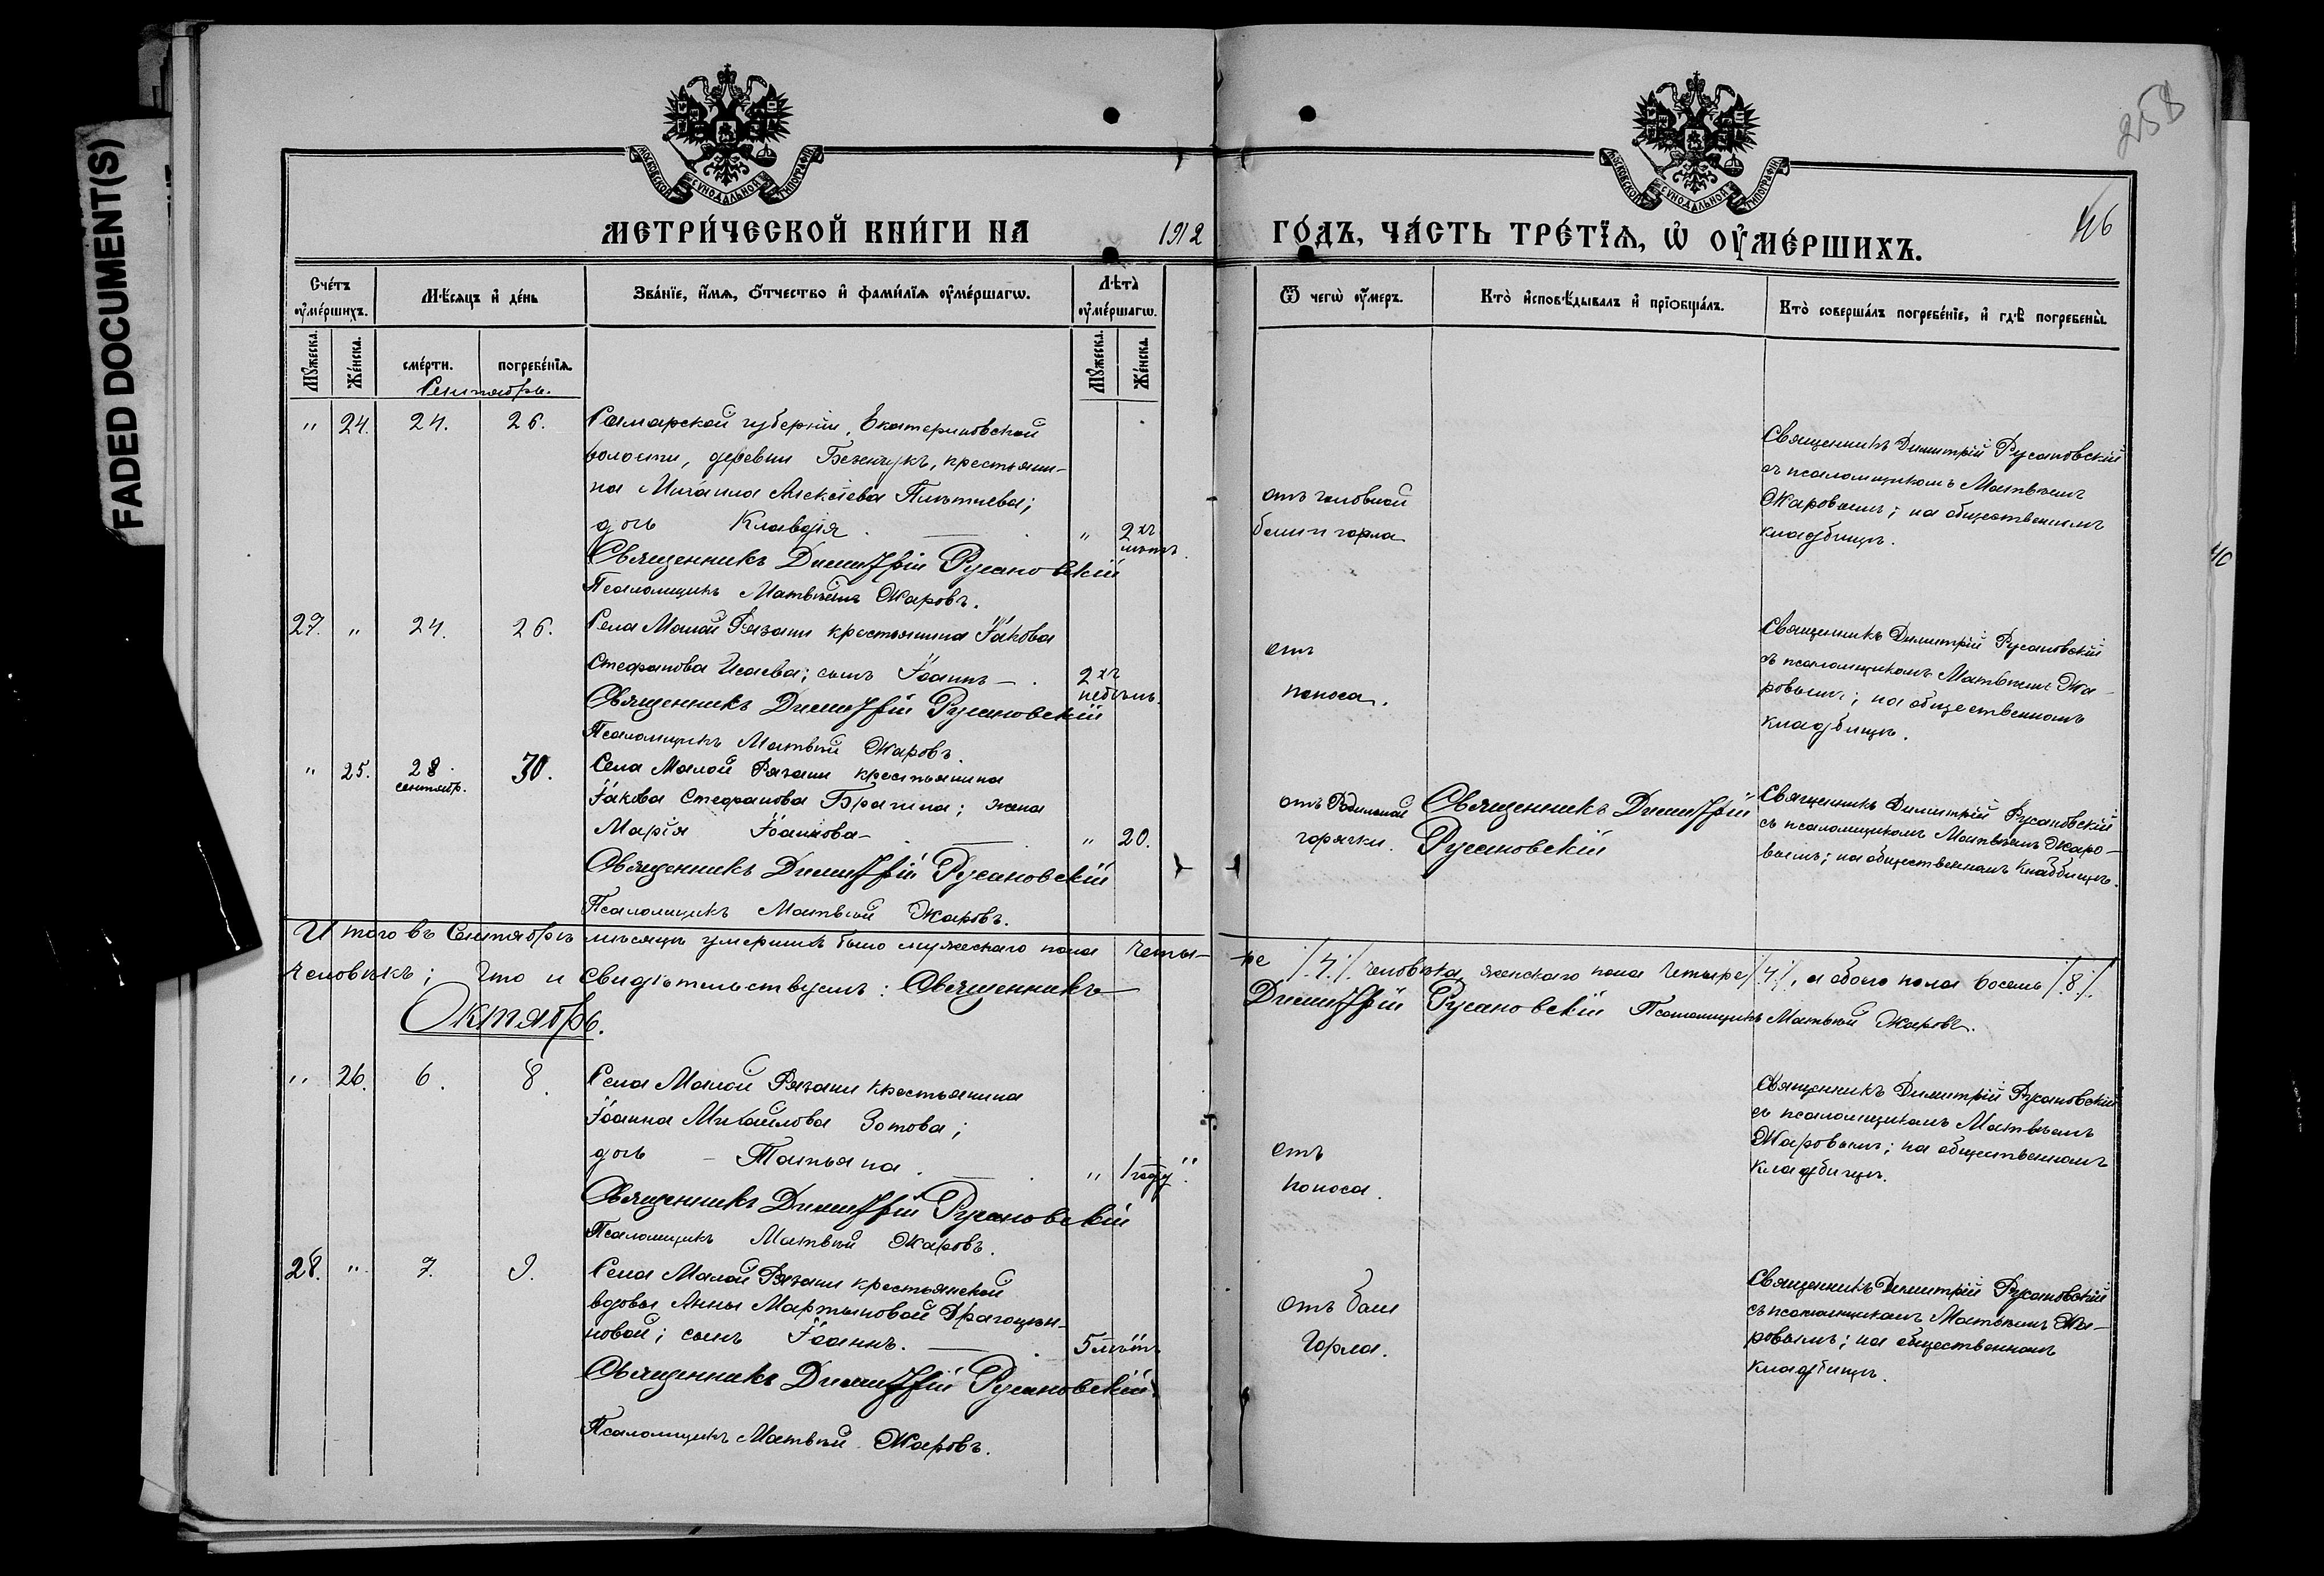 FADED DOCUMENT(S)
258
46
МОСКОВСКОЙ СѴНОДАЛЬНОЙ ТИПОГРАФІИ
МОСКОВСКОЙ СѴНОДАЛЬНОЙ ТИПОГРАФІИ
МЕТРИ́ЧЕСКОЙ КНИ́ГИ НА 1912 ГО́ДЪ, ЧА́СТЬ ТРЕ́ТЇѦ, Ѡ҆ ОУ҆МЕ́РШИХЪ.
Сче́тъ оу҆ме́ршихъ.
Мѣ́сѧцъ и҆ де́нь
Зва́нїе, и҆́мѧ, о҆́тчество и҆ фами́лїѧ оу҆ме́ршагѡ.
Лѣ́та оу҆ме́ршагѡ.
Ѿ чегѡ̀ оу҆́меръ.
Кто̀ и҆сповѣ́дывалъ и҆ прїѻбща́лъ.
Кто̀ соверша́лъ погребе́нїе, и҆ гдѣ̀ погребены̀.
Мꙋ́жеска. Же́нска. сме́рти. погребе́нїѧ. Мꙋ́жеска. Же́нска.
Сентябрь.
" 24. 24. 26. Самарской губерніи, Екатериновской
волости, деревни Безенчукъ, крестьяни-
на Михаила Алексѣева;
дочь Клавдія. " 2хъ
лѣтъ.
Священникъ Димитрій Русановскій
Псаломщикъ Матвѣй Жаровъ.
отъ головной
боли и горла
Священникъ Димитрій Русановскій
съ псаломщикомъ Матвѣемъ
Жаровымъ; на общественномъ
кладбищѣ.
27. " 24. 26. Села Малой Рязани крестьянина Іакова
Стефанова Исаева; сынъ Іоаннъ. 2хъ
недѣль.
Священникъ Димитрій Русановскій
Псаломщикъ Матвѣй Жаровъ.
отъ
поноса.
Священникъ Димитрій Русановскій
съ псаломщикомъ Матвѣемъ Жа-
ровымъ; на общественномъ
кладбищѣ.
" 25. 28. 30. Села Малой Рязани крестьянина
сентябр.
Іакова Стефанова Брагина; жена
Марія Іоаннова. " 20.
Священникъ Димитрій Русановскій
Псаломщикъ Матвѣй Жаровъ.
отъ Родильной
горячки.
Священникъ Димитрій
Русановскій
Священникъ Димитрій Русановскій
съ псаломщикомъ Матвѣемъ Жаро-
вымъ; на общественномъ кладбищѣ.
Итого въ Сентябрѣ мѣсяцѣ умершихъ было мужескаго пола четы-ре /.4./. человѣка, женскаго пола четыре /.4./., а обоего пола восемь /.8./.
человѣкъ; Что и свидѣтельствуемъ: Священникъ Димитрій Русановскій Псаломщикъ Матвѣй Жаровъ.
Октябрь.
" 26. 6. 8. Села Малой Рязани крестьянина
Іоанна Михайлова Зотова;
дочь - Татьяна. " 1 году.
Священникъ Димитрій Русановскій
Псаломщикъ Матвѣй Жаровъ.
отъ
поноса.
Священникъ Димитрій Русановскій
съ псаломщикомъ Матвѣемъ
Жаровымъ; на общественномъ
кладбищѣ.
28. " 7. 9. Села Малой Рязани крестьянской
вдовы Анны Мартыновой Драгоцѣн-
новой; сынъ Іоаннъ. 5 лѣтъ
Священникъ Димитрій Русановскій
Псаломщикъ Матвѣй Жаровъ.
Отъ боли
Горла.
Священникъ Димитрій Русановскій
съ псаломщикомъ Матвѣемъ Жа-
ровымъ; на общественномъ
кладбищѣ.
40